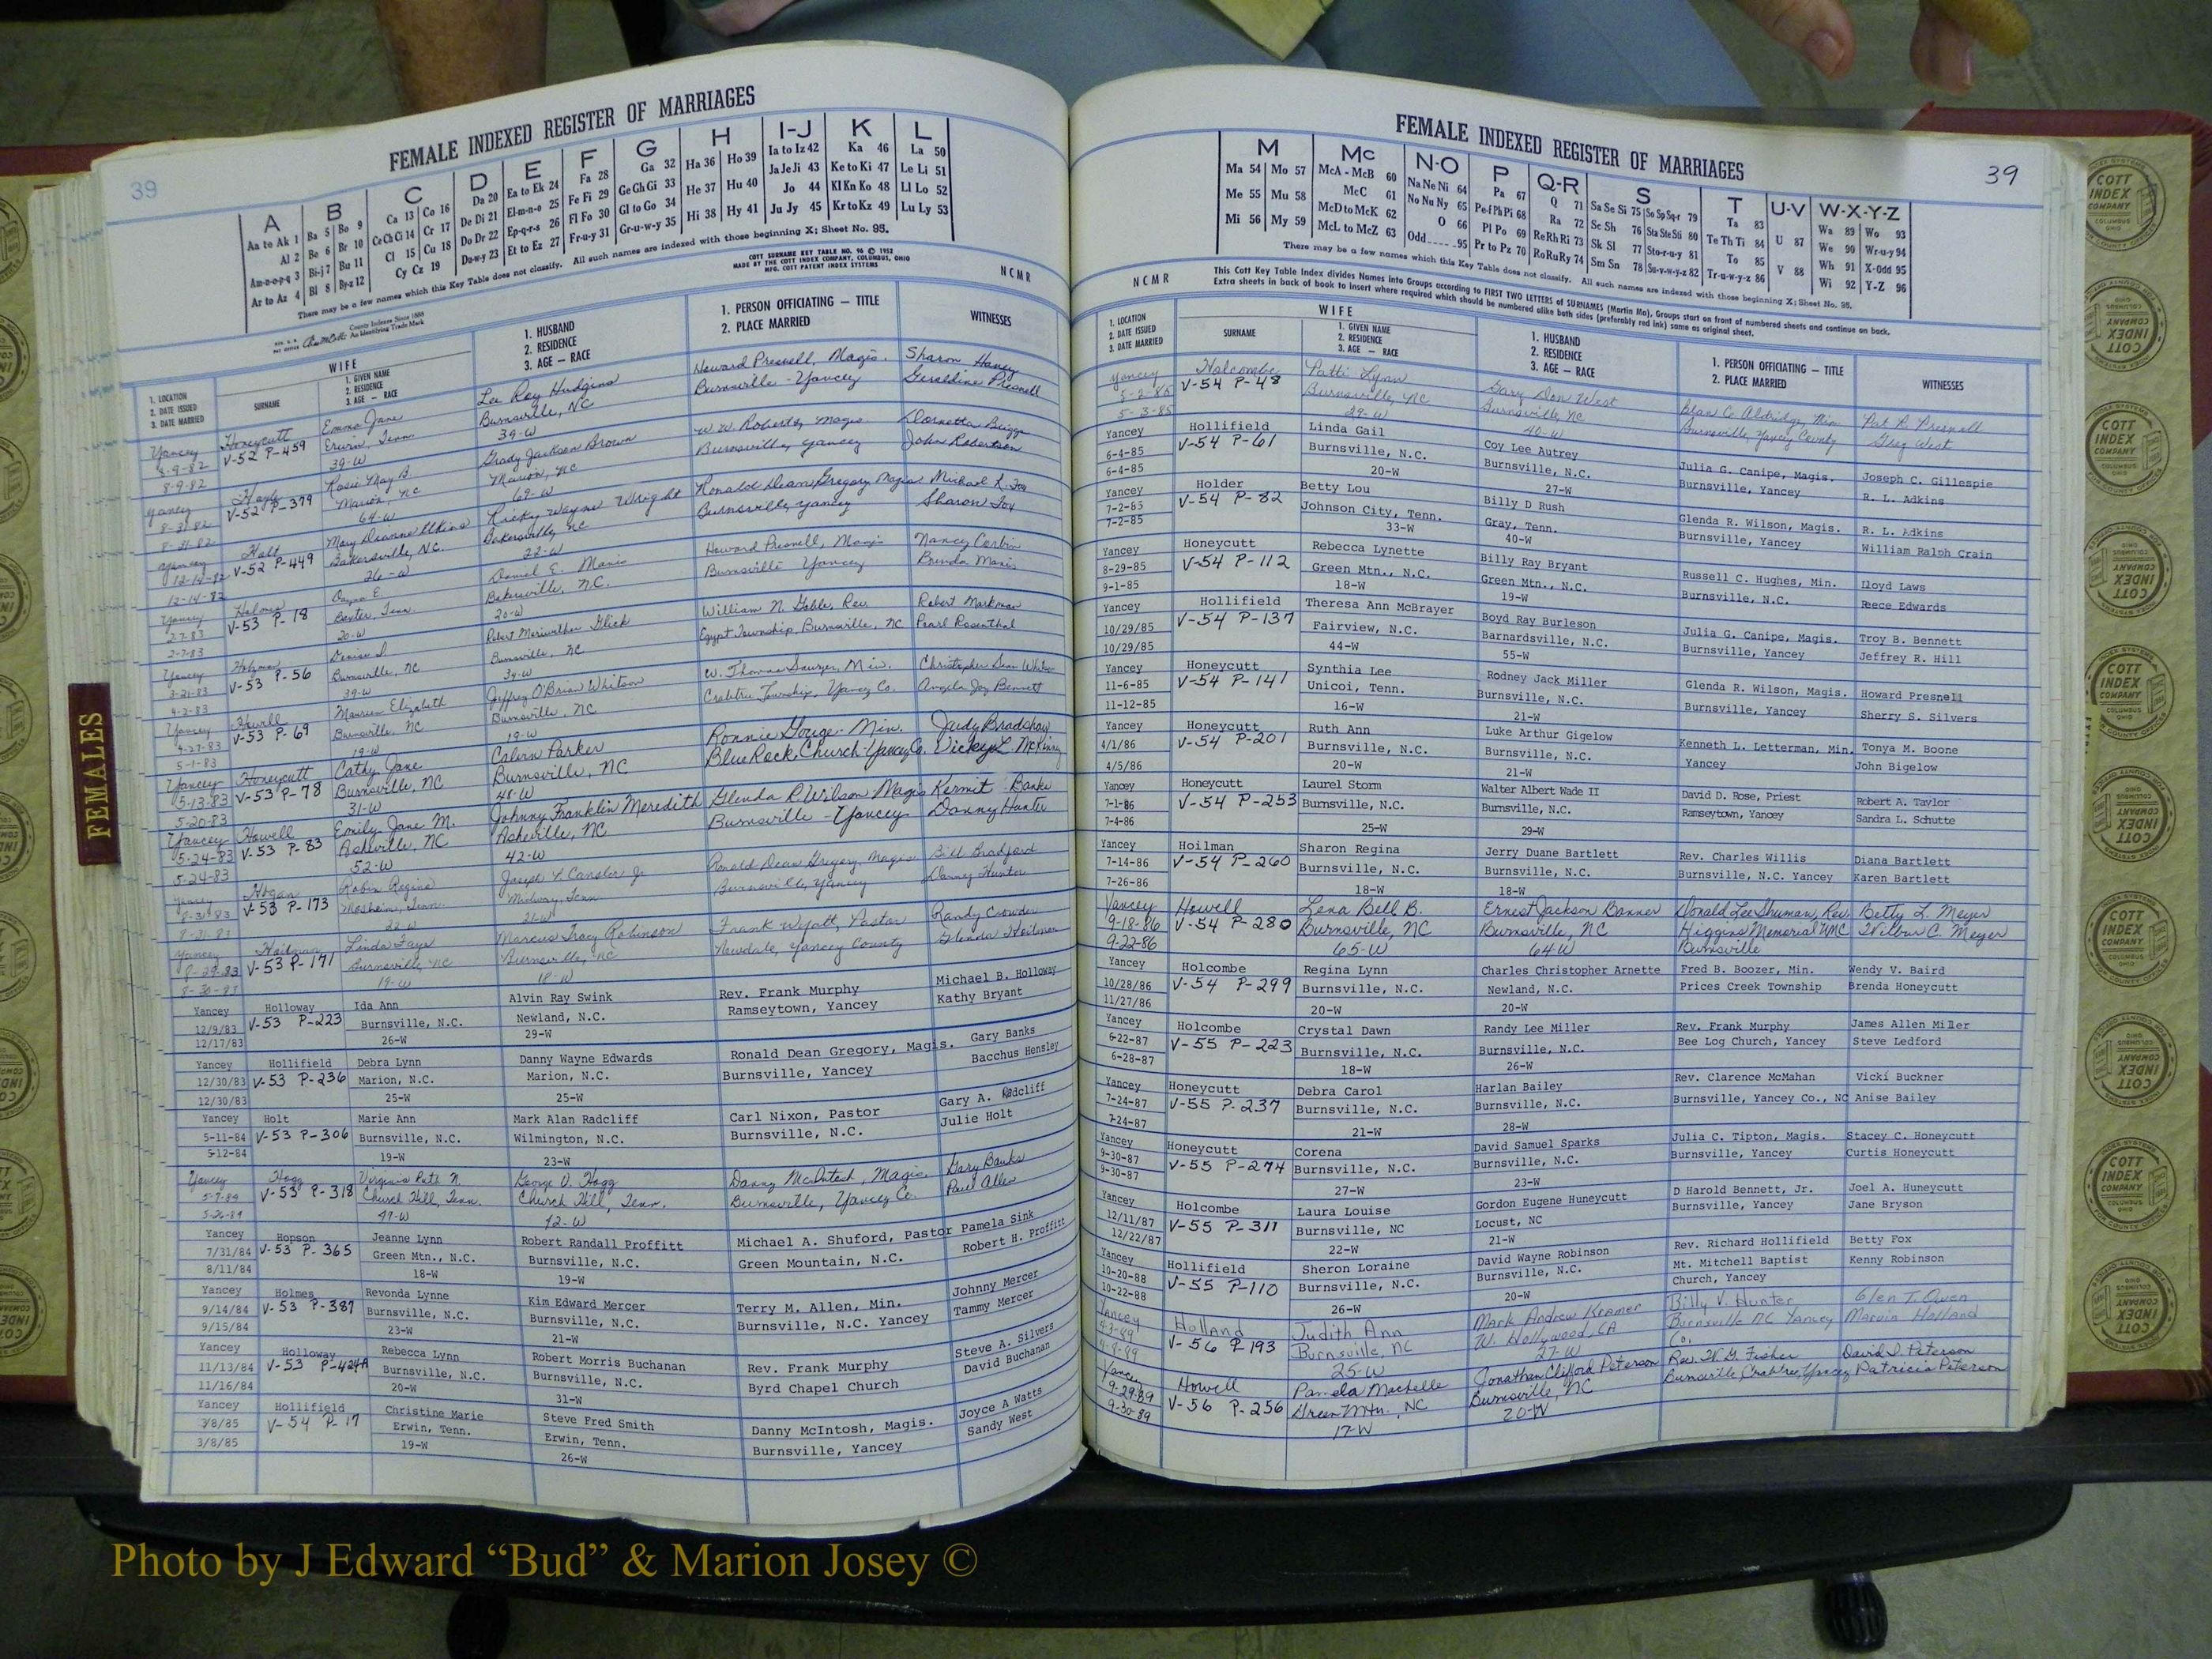 39
FEMALE INDEXED REGISTER OF MARRIAGES
A
Aa to Ak 1
Al 2
Am-n-o-p-q 3
Ar to Az 4
B
Ba 5 Bo 9
Be 6 Br 10
Bi-j 7 Bu 11
Bl 8 By-z 12
C
Ca 13 Co 16
Ce Ch Ci 14 Cr 17
Cl 15 Cu 18
Cy Cz 19
D
Da 20
De Di 21
Do Dr 22
Du-w-y 23
E
Ea to Ek 24
El-m-n-o 25
Ep-q-r-s 26
Et to Ez 27
F
Fa 28
Fe Fi 29
Fl Fo 30
Fr-u-y 31
G
Ga 32
Ge Gh Gi 33
Gl to Go 34
Gr-u-w-y 35
H
Ha 36 Ho 39
He 37 Hu 40
Hi 38 Hy 41
I-J
Ia to Iz 42
Ja Je Ji 43
Jo 44
Ju Jy 45
K
Ka 46
Ke to Ki 47
Kl Kn Ko 48
Kr to Kz 49
L
La 50
Le Li 51
Ll Lo 52
Lu Ly 53
There may be a few names which this Key Table does not classify. All such names are indexed with those beginning X; Sheet No. 95.
COTT SURNAME KEY TABLE NO. 96 © 1952
MADE BY THE COTT INDEX COMPANY, COLUMBUS, OHIO
MFG. COTT PATENT INDEX SYSTEMS
County Indexes Since 1888
An Identifying Trade Mark
NCMR
1. LOCATION
2. DATE ISSUED
3. DATE MARRIED
WIFE
SURNAME
1. GIVEN NAME
2. RESIDENCE
3. AGE — RACE
1. HUSBAND
2. RESIDENCE
3. AGE — RACE
1. PERSON OFFICIATING — TITLE
2. PLACE MARRIED
WITNESSES
Yancey Honeycutt Emma Jane Lee Roy Hudgins Howard Presnell, Magis. Sharon Haney
8-9-82 V-52 P-459 Erwin, Tenn. Burnsville, NC Burnsville - Yancey Geraldine Presnell
8-9-82 39-W 39-W
Yancey Rosie May B. Grady Jackson Brown W. W. Roberts, Magis
8-31-82 V-52 P-379 Marion, NC Marion, NC Burnsville, Yancey John Robertson
8-31-82 64-W 69-W
Yancey Holt Mary Deanne Ricky Wayne Wright Ronald Dean Gregory Magis Michael K. Fox
12-14-82 V-52 P-449 Bakersville, N.C. Bakersville, NC Burnsville, Yancey Sharon Fox
12-14-82 26-W 22-W
Yancey Daniel E. Howard Presnell, Magis Nancy Corbin
2-7-83 V-53 P-18 Tenn. Bakersville, N.C. Burnsville Yancey Brenda
2-7-83 20-W 20-W
Yancey Denise Robert Meriwether Glick William N. Gable, Rev. Robert Markman
3-21-83 V-53 P-56 Burnsville, NC Burnsville, NC Egypt Township, Burnsville, NC Pearl Rosenthal
4-2-83 39-W 34-W
Yancey Howell Maurien Elizabeth Jeffrey O'Brian Whitson W. Thomas Sawyer, Min. Christopher Dean
4-27-83 V-53 P-69 Burnsville, NC Burnsville, NC Crabtree Township, Yancey Co. Angela Joy Bennett
5-1-83 19-W 19-W
Yancey Honeycutt Cathy Jane Calvin Parker Ronnie Gouge - Min. Judy Bradshaw
5-13-83 V-53 P-78 Burnsville, NC Burnsville, NC Blue Rock Church - Yancey Co. Vickey L. McKinney
5-20-83 31-W 40-W
Yancey Howell Emily Jane M. Johnny Franklin Meredith Glenda R. Wilson Magis Kermit Banks
5-24-83 V-53 P-83 Asheville, NC Asheville, NC Burnsville - Yancey Danny Hunter
5-24-83 52-W 42-W
Yancey Hogan Robin Regina Joseph L Cansler Jr Ronald Dean Gregory, Magis Bill Bradford
8-31-83 V-53 P-173 Mosheim, Tenn. Midway, Tenn Burnsville, Yancey Danny Hunter
8-31-83 22-W 26-W
Yancey Heilman Linda Faye Marcus Tracy Robinson Frank Wyatt, Pastor Randy Crowder
8-29-83 V-53 P-171 Burnsville, NC Burnsville, NC Newdale, Yancey County Glenda Heilman
8-30-83 19-W 18-W
Yancey Holloway Ida Ann Alvin Ray Swink Rev. Frank Murphy Michael B. Holloway
12/9/83 V-53 P-223 Burnsville, N.C. Newland, N.C. Ramseytown, Yancey Kathy Bryant
12/17/83 26-W 29-W
Yancey Hollifield Debra Lynn Danny Wayne Edwards Ronald Dean Gregory, Magis. Gary Banks
12/30/83 V-53 P-236 Marion, N.C. Marion, N.C. Burnsville, Yancey Bacchus Hensley
12/30/83 25-W 25-W
Yancey Holt Marie Ann Mark Alan Radcliff Carl Nixon, Pastor Gary A. Radcliff
5-11-84 V-53 P-306 Burnsville, N.C. Wilmington, N.C. Burnsville, N.C. Julie Holt
5-12-84 19-W 23-W
Yancey Hogg Virginia Ruth N. George O. Hogg Danny McIntosh, Magis. Gary Banks
V-53 P-318 Church Hill, Tenn. Church Hill, Tenn. Burnsville, Yancey Co. Paul Allen
5-26-84 47-W 42-W
Yancey Hopson Jeanne Lynn Robert Randall Proffitt Michael A. Shuford, Pastor Pamela Sink
7/31/84 V-53 P-365 Green Mtn., N.C. Burnsville, N.C. Green Mountain, N.C. Robert H. Proffitt
8/11/84 18-W 19-W
Yancey Holmes Revonda Lynne Kim Edward Mercer Terry M. Allen, Min. Johnny Mercer
9/14/84 V-53 P-387 Burnsville, N.C. Burnsville, N.C. Burnsville, N.C. Yancey Tammy Mercer
9/15/84 23-W 21-W
Yancey Holloway Rebecca Lynn Robert Morris Buchanan Rev. Frank Murphy Steve A. Silvers
11/13/84 V-53 P-424A Burnsville, N.C. Burnsville, N.C. Byrd Chapel Church David Buchanan
11/16/84 20-W 31-W
Yancey Hollifield Christine Marie Steve Fred Smith Danny McIntosh, Magis. Joyce A Watts
3/8/85 V-54 P-17 Erwin, Tenn. Erwin, Tenn. Burnsville, Yancey Sandy West
3/8/85 19-W 26-W
FEMALES
FEMALE INDEXED REGISTER OF MARRIAGES
39
M
Ma 54 Mo 57
Me 55 Mu 58
Mi 56 My 59
Mc
McA - McB 60
McC 61
McD to McK 62
McL to McZ 63
N-O
Na Ne Ni 64
No Nu Ny 65
O 66
Odd 95
P
Pa 67
Pe-f Ph Pi 68
Pl Po 69
Pr to Pz 70
Q-R
Q 71
Ra 72
Re Rh Ri 73
Ro Ru Ry 74
S
Sa Se Si 75 So Sp Sq-r 79
Sc Sh 76 Sta Ste Sti 80
Sk Sl 77 Sto-r-u-y 81
Sm Sn 78 Su-v-w-y-z 82
T
Ta 83
Te Th Ti 84
To 85
Tr-u-w-y-z 86
U-V
U 87
V 88
W-X-Y-Z
Wa 89 Wo 93
We 90 Wr-u-y 94
Wh 91 X-Odd 95
Wi 92 Y-Z 96
There may be a few names which this Key Table does not classify. All such names are indexed with those beginning X; Sheet No. 95.
NCMR
This Cott Key Table Index divides Names into Groups according to FIRST TWO LETTERS of SURNAMES (Martin Ma), Groups start on front of numbered sheets and continue on back.
Extra sheets in back of book to insert where required which should be numbered alike both sides (preferably red ink) same as original sheet.
1. LOCATION
2. DATE ISSUED
3. DATE MARRIED
WIFE
SURNAME
1. GIVEN NAME
2. RESIDENCE
3. AGE — RACE
1. HUSBAND
2. RESIDENCE
3. AGE — RACE
1. PERSON OFFICIATING — TITLE
2. PLACE MARRIED
WITNESSES
Yancey Holcombe Patti Lynn Gary Don West Alan C. Aldridge, Min Pat R. Presnell
5-2-85 V-54 P-48 Burnsville, NC Burnsville NC Burnsville, Yancey County Greg West
5-3-85 29-W 40-W
Yancey Hollifield Linda Gail Coy Lee Autrey Julia G. Canipe, Magis. Joseph C. Gillespie
6-4-85 V-54 P-61 Burnsville, N.C. Burnsville, N.C. Burnsville, Yancey R. L. Adkins
6-4-85 20-W 27-W
Yancey Holder Betty Lou Billy D Rush Glenda R. Wilson, Magis. R. L. Adkins
7-2-85 V-54 P-82 Johnson City, Tenn. Gray, Tenn. Burnsville, Yancey William Ralph Crain
7-2-85 33-W 40-W
Yancey Honeycutt Rebecca Lynette Billy Ray Bryant Russell C. Hughes, Min. Lloyd Laws
8-29-85 V-54 P-112 Green Mtn., N.C. Green Mtn., N.C. Burnsville, N.C. Reece Edwards
9-1-85 18-W 19-W
Yancey Hollifield Theresa Ann McBrayer Boyd Ray Burleson Julia G. Canipe, Magis. Troy B. Bennett
10/29/85 V-54 P-137 Fairview, N.C. Barnardsville, N.C. Burnsville, Yancey Jeffrey R. Hill
10/29/85 44-W 55-W
Yancey Honeycutt Synthia Lee Rodney Jack Miller Glenda R. Wilson, Magis. Howard Presnell
11-6-85 V-54 P-141 Unicoi, Tenn. Burnsville, N.C. Burnsville, Yancey Sherry S. Silvers
11-12-85 16-W 21-W
Yancey Honeycutt Ruth Ann Luke Arthur Gigelow Kenneth L. Letterman, Min. Tonya M. Boone
4/1/86 V-54 P-201 Burnsville, N.C. Burnsville, N.C. Yancey John Bigelow
4/5/86 20-W 21-W
Yancey Honeycutt Laurel Storm Walter Albert Wade II David D. Rose, Priest Robert A. Taylor
7-1-86 V-54 P-253 Burnsville, N.C. Burnsville, N.C. Ramseytown, Yancey Sandra L. Schutte
7-4-86 25-W 29-W
Yancey Hoilman Sharon Regina Jerry Duane Bartlett Rev. Charles Willis Diana Bartlett
7-14-86 V-54 P-260 Burnsville, N.C. Burnsville, N.C. Burnsville, N.C. Yancey Karen Bartlett
7-26-86 18-W 18-W
Yancey Howell Lena Bell B. Ernest Jackson Banner Donald Lee Shuman, Rev. Betty L. Meyer
9-18-86 V-54 P-280 Burnsville, NC Burnsville, NC Higgins Memorial UMC Wilbur C. Meyer
9-22-86 65-W 64-W Burnsville
Yancey Holcombe Regina Lynn Charles Christopher Arnette Fred B. Boozer, Min. Wendy V. Baird
10/28/86 V-54 P-299 Burnsville, N.C. Newland, N.C. Prices Creek Township Brenda Honeycutt
11/27/86 20-W 20-W
Yancey Holcombe Crystal Dawn Randy Lee Miller Rev. Frank Murphy James Allen Miller
6-22-87 V-55 P-223 Burnsville, N.C. Burnsville, N.C. Bee Log Church, Yancey Steve Ledford
6-28-87 18-W 26-W
Yancey Honeycutt Debra Carol Harlan Bailey Rev. Clarence McMahan Vicki Buckner
7-24-87 V-55 P-237 Burnsville, N.C. Burnsville, N.C. Burnsville, Yancey Co., NC Anise Bailey
7-24-87 21-W 28-W
Yancey Honeycutt Corena David Samuel Sparks Julia C. Tipton, Magis. Stacey C. Honeycutt
9-30-87 V-55 P-274 Burnsville, N.C. Burnsville, N.C. Burnsville, Yancey Curtis Honeycutt
9-30-87 27-W 23-W
Yancey Holcombe Laura Louise Gordon Eugene Huneycutt D Harold Bennett, Jr. Joel A. Huneycutt
12/11/87 V-55 P-311 Burnsville, NC Locust, NC Burnsville, Yancey Jane Bryson
12/22/87 22-W 21-W
Yancey Hollifield Sheron Loraine David Wayne Robinson Rev. Richard Hollifield Betty Fox
10-20-88 V-55 P-110 Burnsville, N.C. Burnsville, N.C. Mt. Mitchell Baptist Kenny Robinson
10-22-88 26-W 20-W Church, Yancey
Yancey Holland Judith Ann Mark Andrew Kramer Billy V. Hunter Glen T. Owen
4-3-89 V-56 P-193 Burnsville, NC W. Hollywood, CA Burnsville NC Yancey Marvin Holland
4-8-89 25-W 27-W Co.
Yancey Howell Pamela Machelle Jonathan Clifford Peterson Rev. W. G. Fisher David D. Peterson
9-29-89 V-56 P-256 Green Mtn., NC Burnsville, NC Burnsville, Crabtree, Yancey Patricia Peterson
9-30-89 17-W 20-W
COTT
INDEX
COMPANY
COLUMBUS
OHIO
Photo by J Edward “Bud” & Marion Josey ©